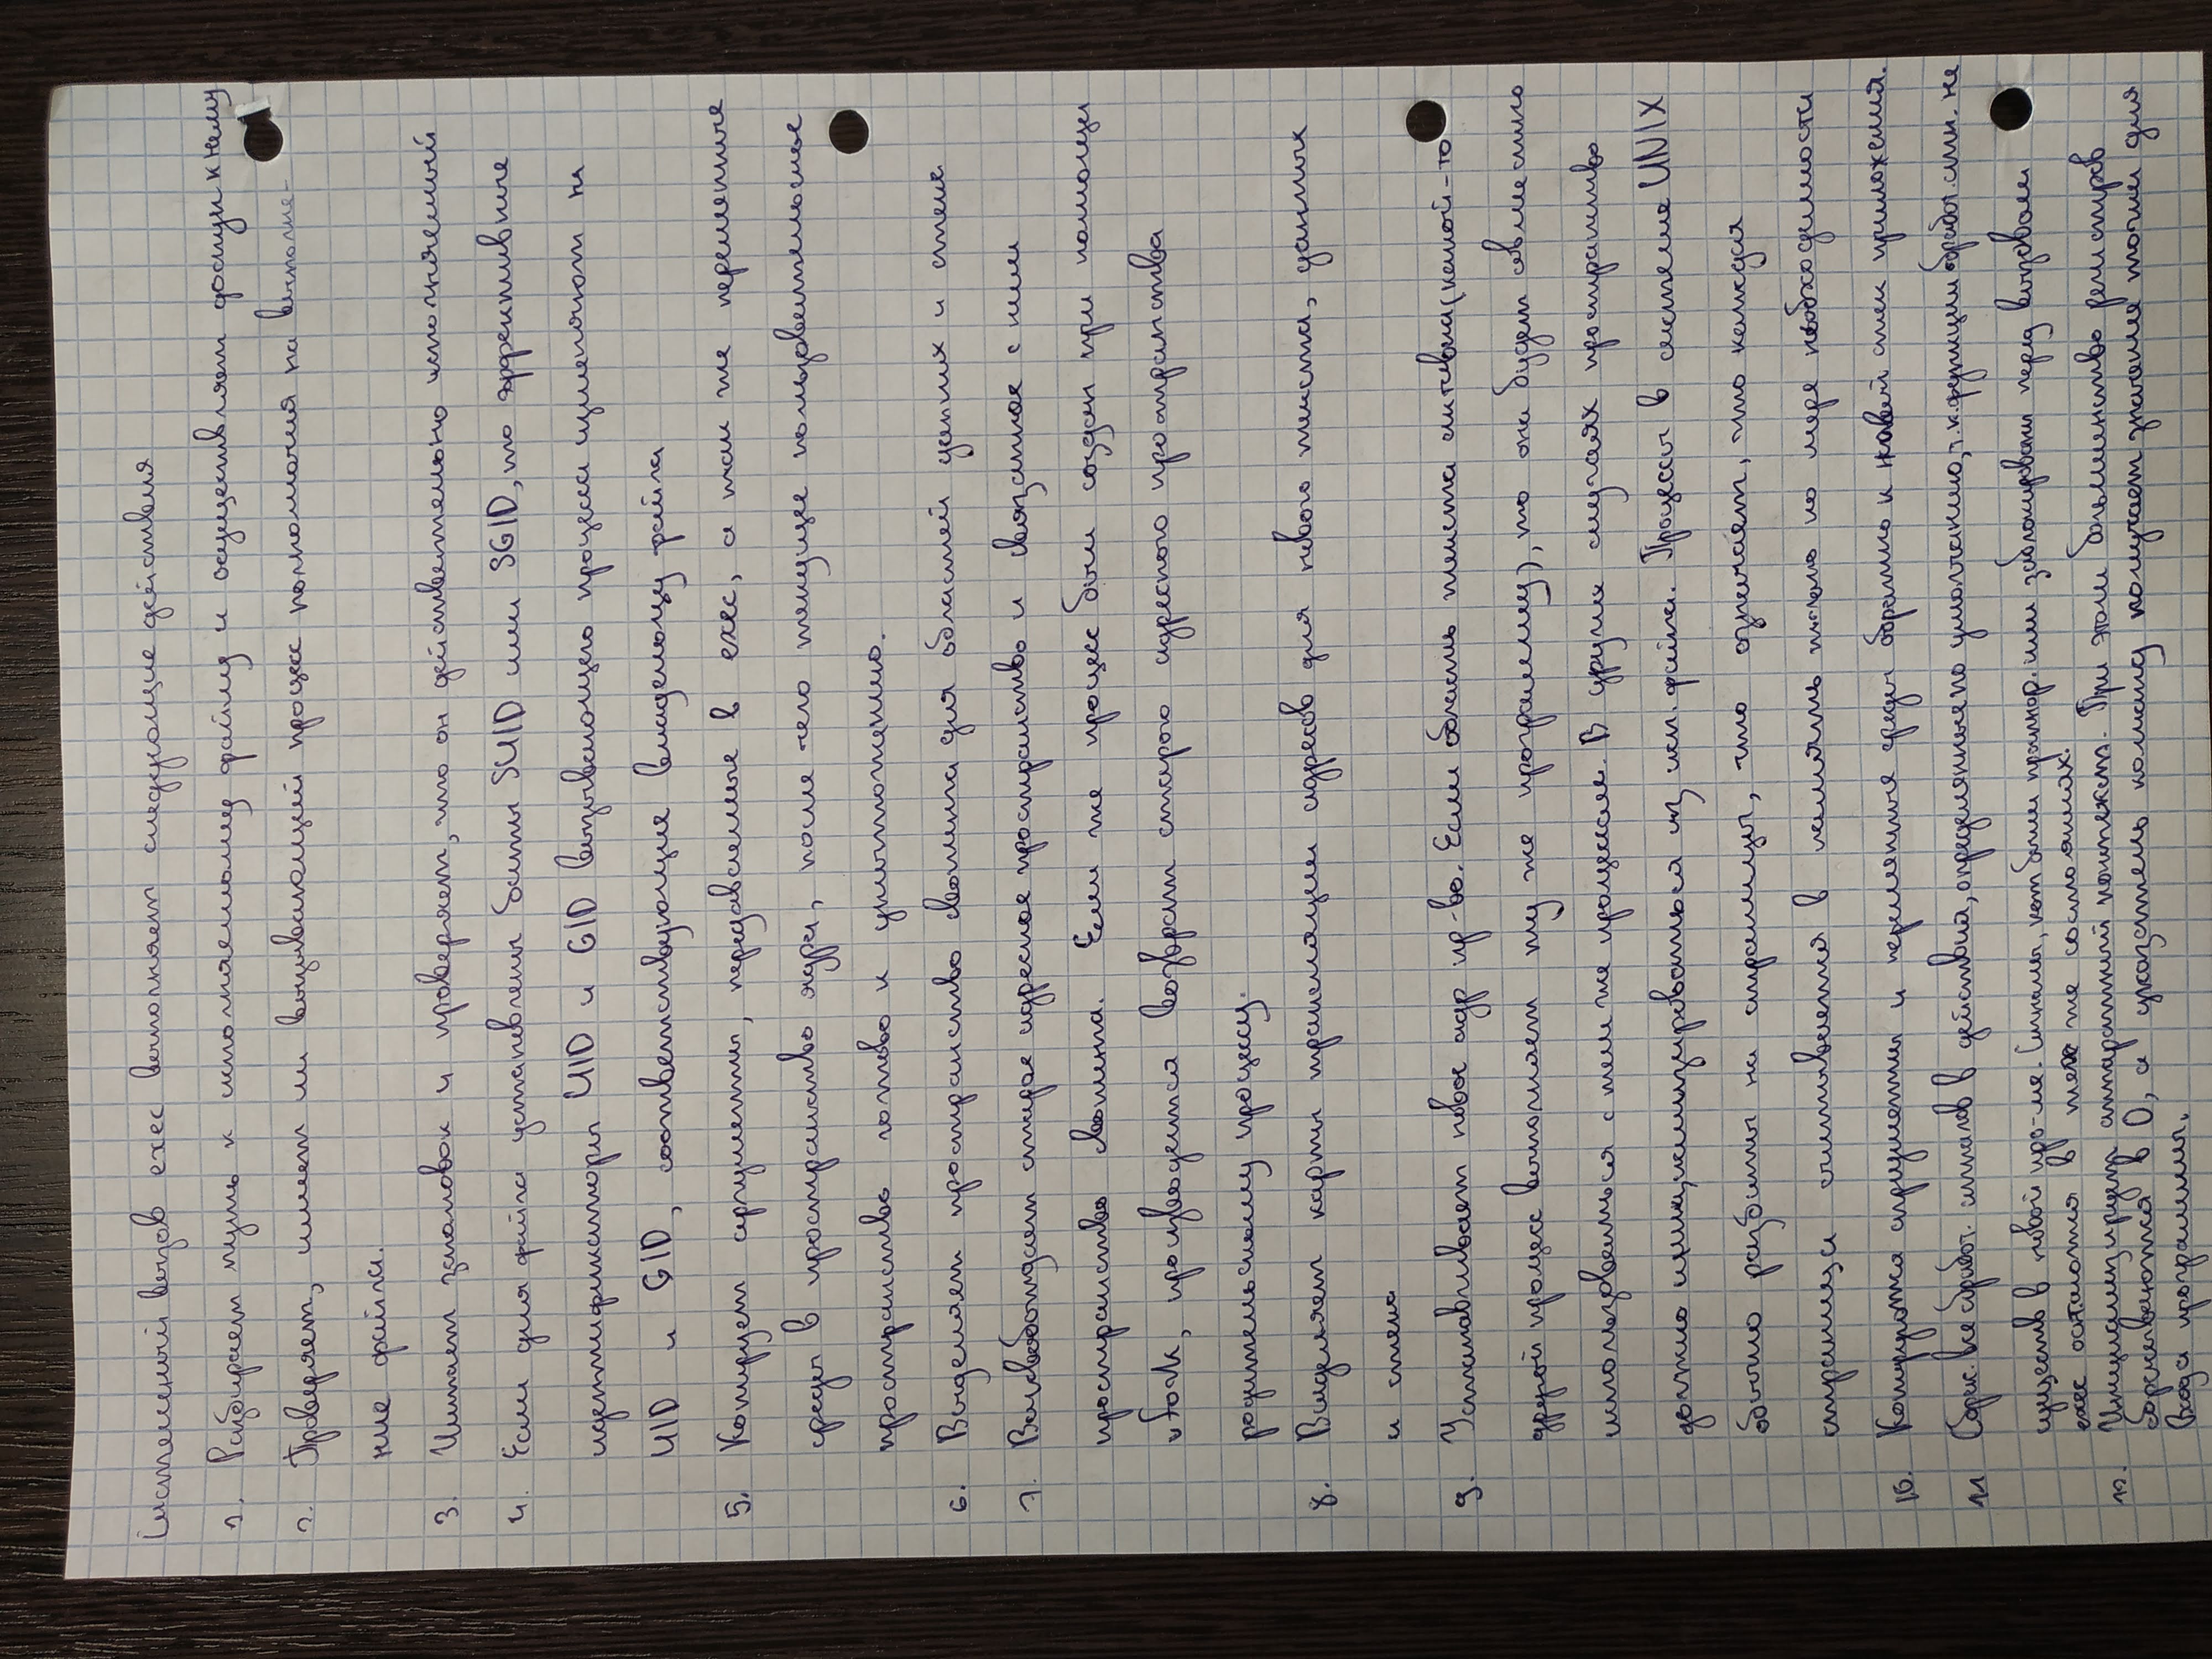 Системный вызов exec выполняет следующие действия
1. Разбирает путь к исполняемому файлу и осуществляет доступ к нему
2. Проверяет, имеет ли вызывающий процесс полномочия на выполне-
ние файла.
3. Читает заголовок и проверяет, что он действительно исполняемый
4. Если для файла установлены биты SUID или SGID, то эффективные
идентификаторы UID и GID вызывающего процесса изменяют на
UID и GID, соответствующие владельцу файла
5. Копирует аргументы, передаваемые в exec, а так же переменные
среды в пространство ядра, после чего текущее пользовательское
пространство готово к уничтожению.
6. Выделяет пространство свопинга для областей данных и стека
7. Высвобождает старое адресное пространство и связанное с ним
пространство свопинга. Если же процесс был создан при помощи
vfork, производится возврат старого адресного пространства
родительскому процессу.
8. Выделяет карты трансляции адресов для нового текста, данных
и стека
9. Устанавливает новое адр пр-во. Если область текста активна(какой-то
другой процесс выполняет ту же программу), то она будет совместно
использоваться с тем же процессом. В других случаях пространство
должно инициализироваться из исп. файла. Процессы в системе UNIX
обычно разбиты на страницы, что означает, что каждая
страница считывается в память только по мере необходимости
10. Копируются аргументы и переменные среды обратно к новый стек приложения.
11 Сбрас. все обработ. сигналов в действия, определенные по умолчанию, т.к. функции обработ. сигн. не
существ в новой про-ме. Сигналы, кот были проигнор. или заблокированы перед вызовом
exec остаются в тех же состояниях.
12. Инициализирует аппаратный контекст. При этом большинство регистров
сбрасываются в 0, а указатель команд получает значение точки для
входа программы.